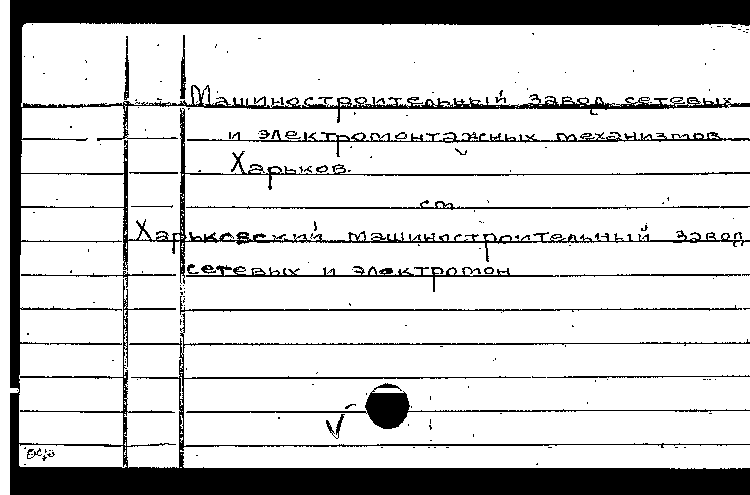 Машиностроительный завод сетевых
и электромонтажных механизмов
Харьков.
см
Харьковский машиностроительный завод
сетевых и электромон